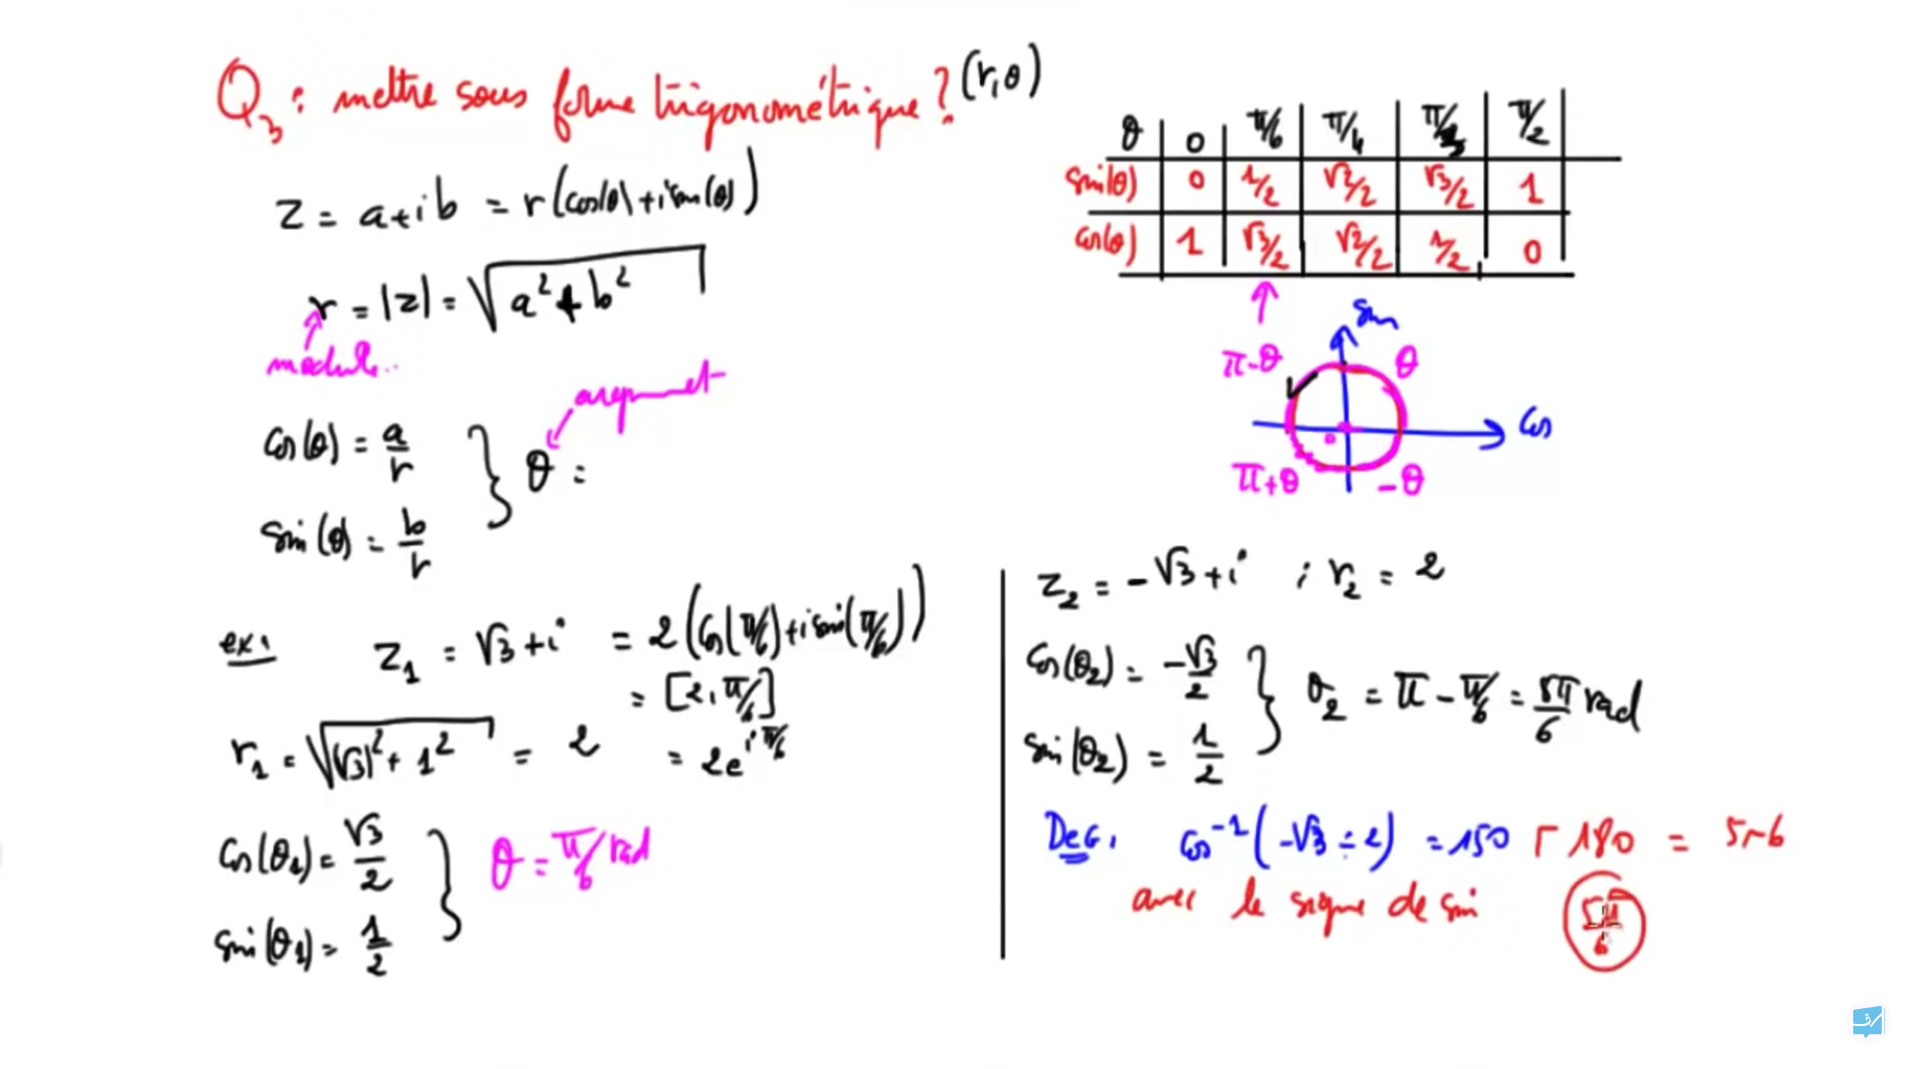 Q3 : mettre sous forme trigonométrique ? (r, θ)
Z = a + ib = r(cos(θ) + i sin(θ))
r = |z| = √(a² + b²)
module
argument
cos(θ) = a/r
sin(θ) = b/r
} θ =
θ | 0 | π/6 | π/4 | π/3 | π/2
sin(θ) | 0 | 1/2 | √2/2 | √3/2 | 1
cos(θ) | 1 | √3/2 | √2/2 | 1/2 | 0
sin
π-θ θ
cos
0
π+θ -θ
ex: Z1 = √3 + i = 2(cos(π/6) + i sin(π/6))
= [2, π/6]
r1 = √((√3)² + 1²) = 2 = 2e^(iπ/6)
cos(θ1) = √3/2
sin(θ1) = 1/2
} θ = π/6 rad
Z2 = -√3 + i ; r2 = 2
cos(θ2) = -√3/2
sin(θ2) = 1/2
} θ2 = π - π/6 = 5π/6 rad
DEG: cos⁻¹(-√3 ÷ 2) = 150 ┌ 180 = 5┌6
avec le signe de sin 5π/6